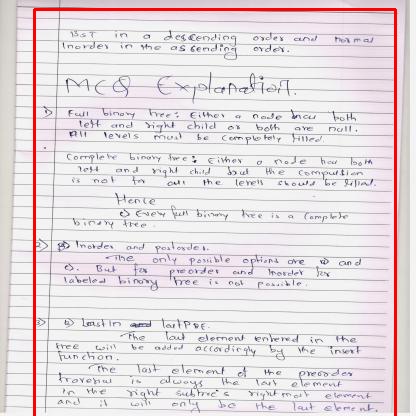 BST in a descending order and normal
Inorder in the ascending order.
MCQ Explanation.
1) Full binary tree: Either a node has both
left and right child or both are null.
All levels must be completely filled.
Complete binary tree: Either a node has both
left and right child but the compulsion
is not for all the levels should be filled.
Hence
c) Every full binary tree is a complete
binary tree.
2) Inorder and postorder.
The only possible options are and
c). But for preorder and Inorder for
labeled binary tree is not possible.
3) b) LastIn lastPRE.
The last element entered in the
tree will be added accordingly by the insert
function.
The last element of the preorder
traversal is always the last element
in the right subtree's rightmost element
and it will only be the last element.